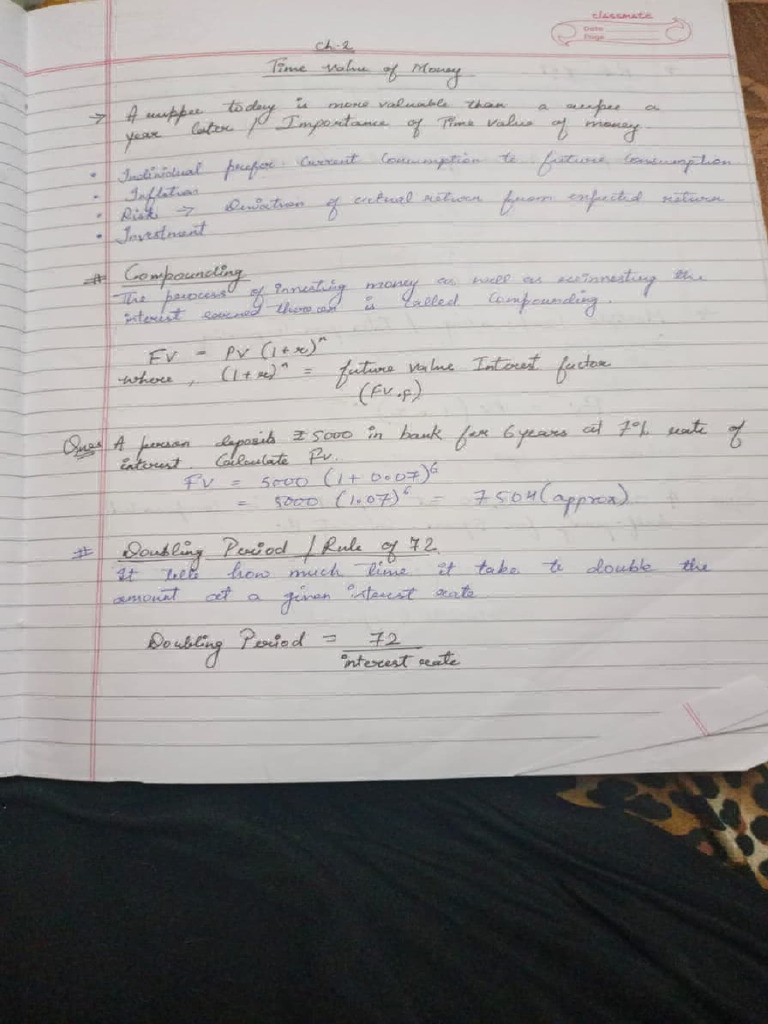 classmate
Date
Page
Ch-2
Time Value of Money
→ A ruppee today is more valuable than a rupee a
year later / Importance of Time value of money.
• Individual prefer current consumption to future consumption
• Inflation
• Risk → Deviation of actual return from expected return
• Investment
# Compounding
The process of investing money as well as reinvesting the
interest earned thereon is called Compounding.
FV = PV (1+r)ⁿ
where, (1+r)ⁿ = future value Interest factor
(FV.f)
Ques A person deposits ₹5000 in bank for 6 years at 7% rate of
interest. Calculate Fv.
FV = 5000 (1+0.07)⁶
= 5000 (1.07)⁶ = 7504 (approx)
# Doubling Period / Rule of 72.
It tells how much time it take to double the
amount at a given interest rate
Doubling Period = 72
interest rate